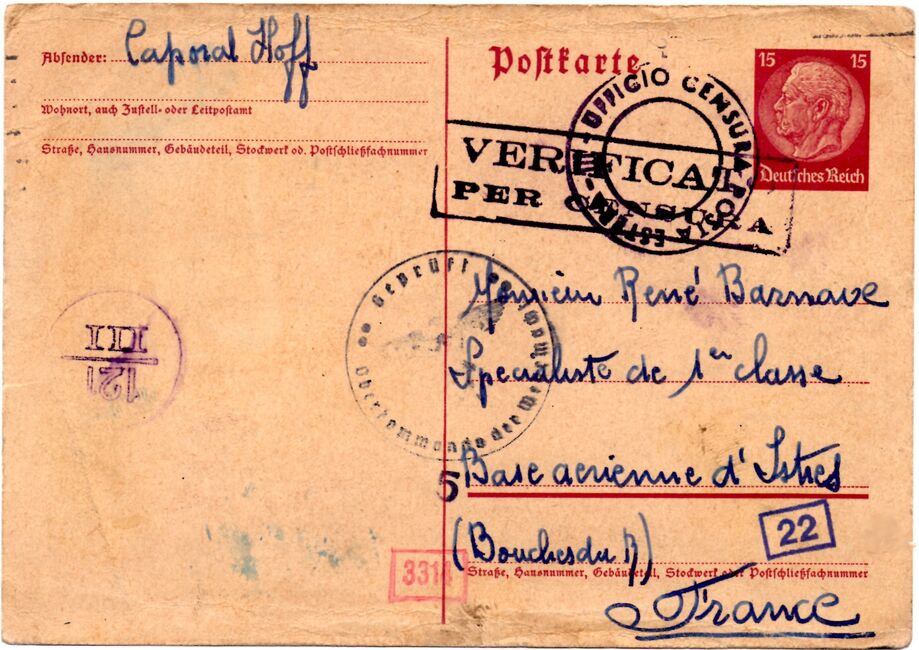 Absender: Caporal Hoff
Wohnort, auch Zustell- oder Leitpostamt
Straße, Hausnummer, Gebäudeteil, Stockwerk od. Postschließfachnummer
Postkarte
15 15
Deutsches Reich
UFFICIO CENSURA POSTA ESTERA - III
VERIFICAT
PER CENSURA
Geprüft
Oberkommando der Wehrmacht
121
III
Monsieur René Barnave
Spécialiste de 1er classe
5
Base aerienne d'Istres
(Bouches du R)
22
3314
Straße, Hausnummer, Gebäudeteil, Stockwerk oder Postschließfachnummer
France